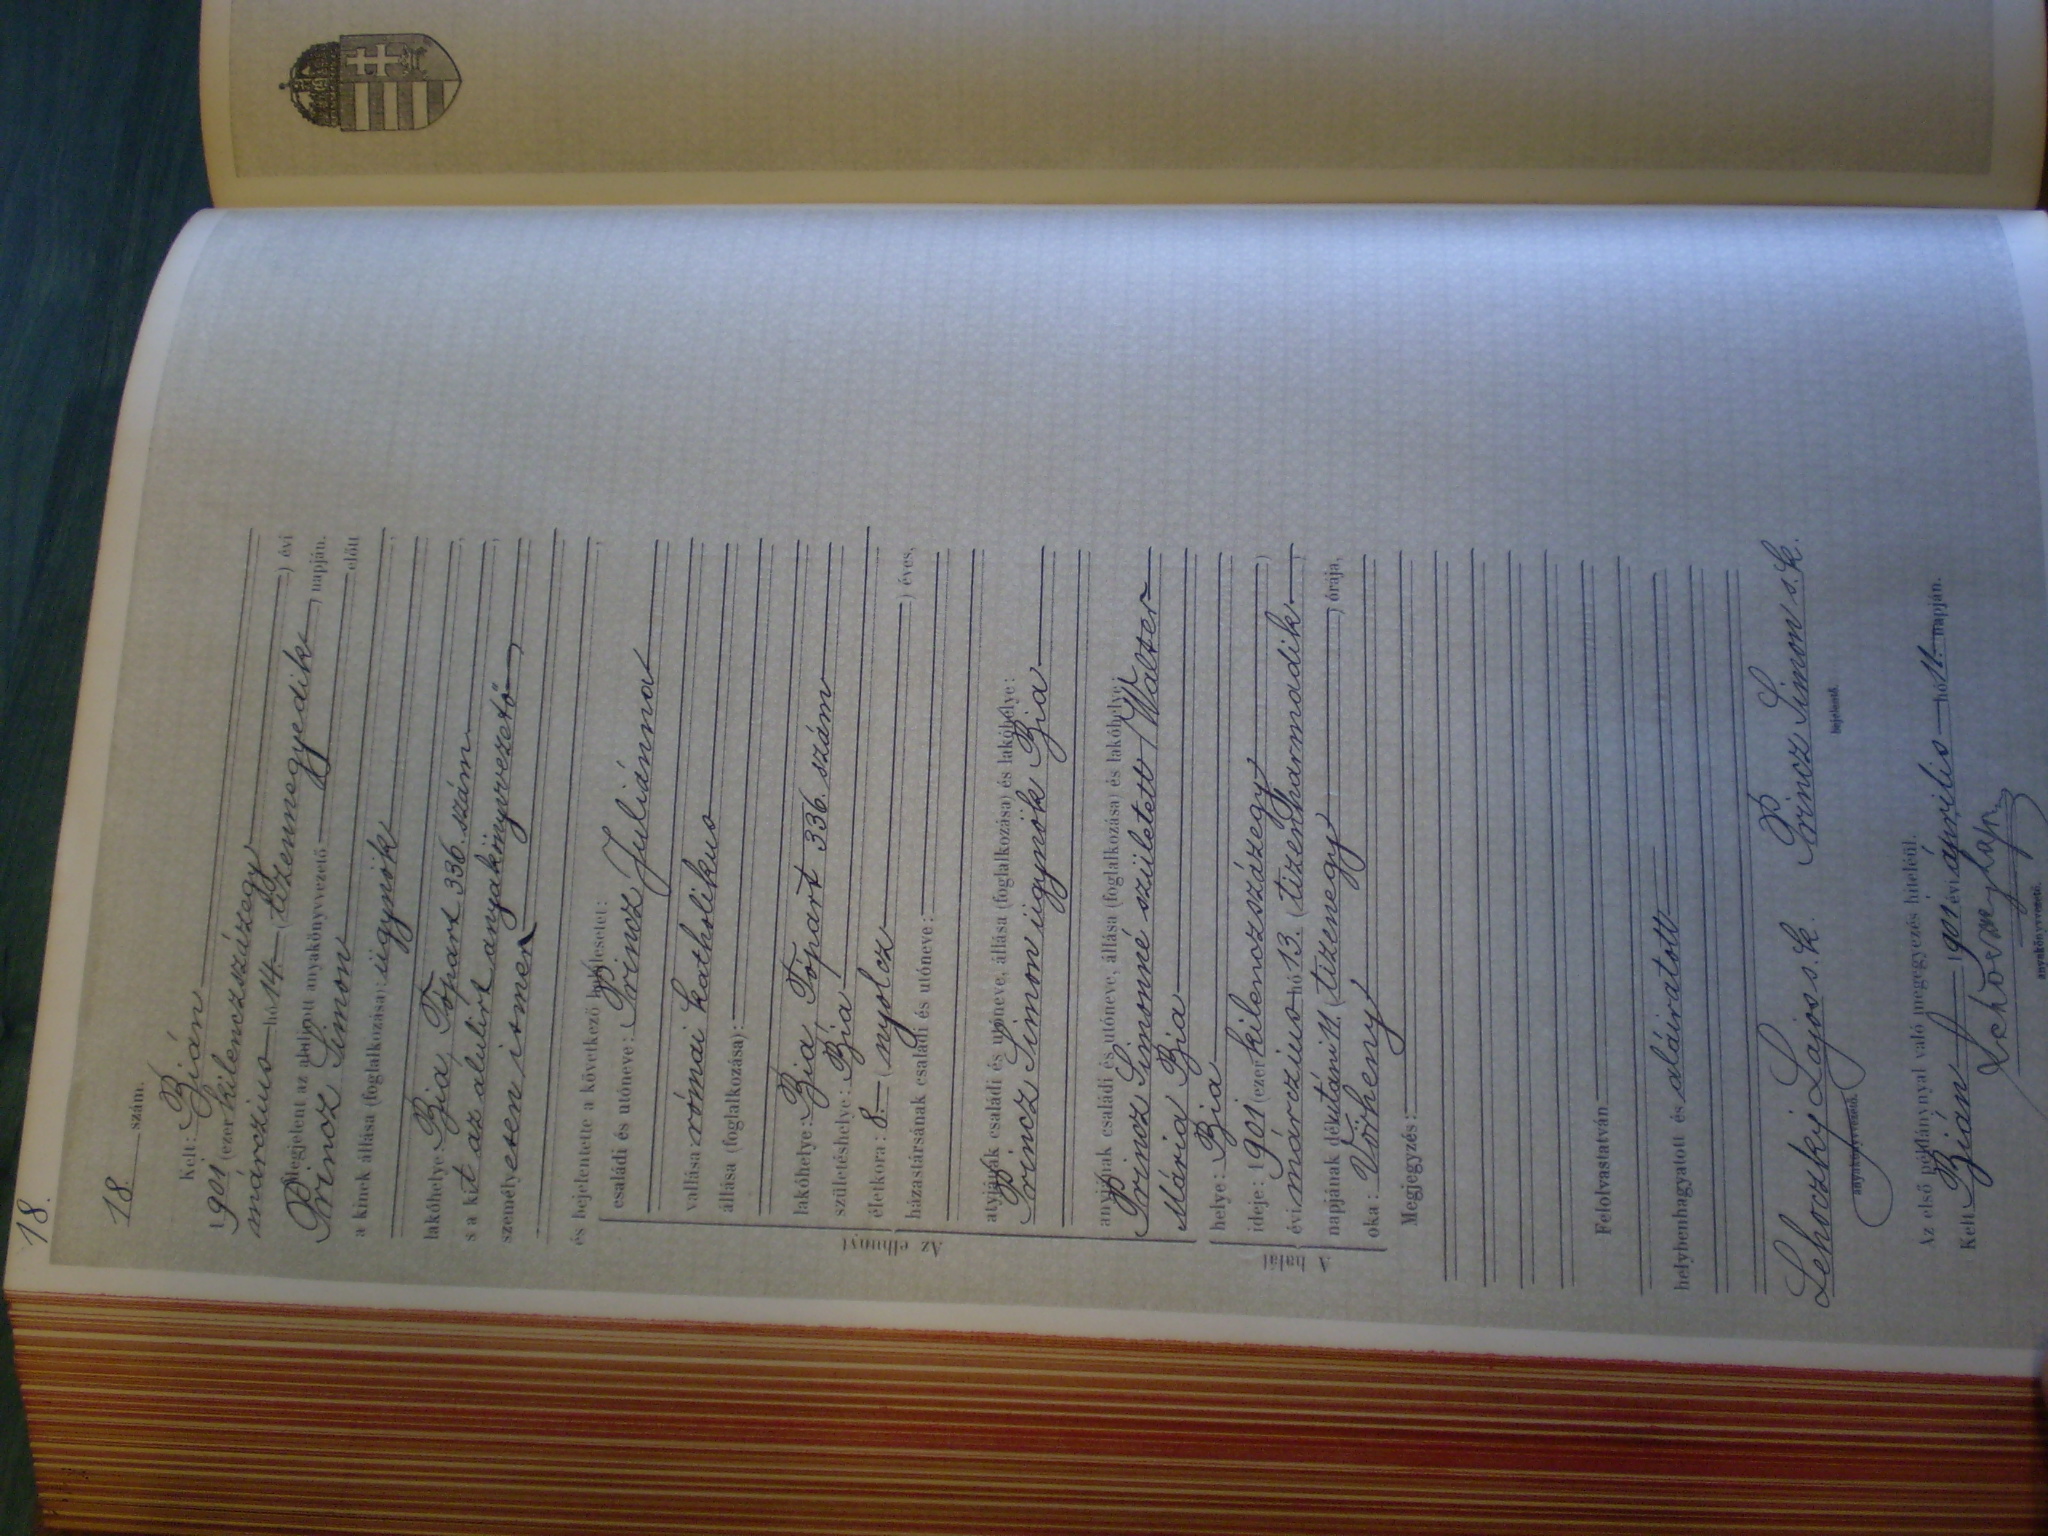 18.
18. szám.
Kelt: Bián
1901 (ezerkilenczszázegy) évi
márczius hó 14. (tizennegyedik) napján.
Megjelent az alulirott anyakönyvvezető előtt
Princz Simon
a kinek állása (foglalkozása): ügynök
lakóhelye: Bia, Tópart 336. szám
s a kit az alulirt anyakönyvvezető
személyesen ismer,
és bejelentette a következő halálesetet:
Az elhunyt
családi és utóneve: Princz Juliánna
vallása római katholikus
állása (foglalkozása):
lakóhelye: Bia Tópart 336. szám
születéshelye: Bia
életkora: 8. (nyolcz) éves,
házastársának családi és utóneve:
atyjának családi és utóneve, állása (foglalkozása) és lakóhelye:
Princz Simon ügynök Bia
anyjának családi és utóneve, állása (foglalkozása) és lakóhelye:
Princz Simonné született Walter
Mária Bia
A halál
helye: Bia
ideje: 1901 (ezerkilenczszázegy)
évi márczius hó 13. (tizenharmadik)
napjának délutáni 11. (tizenegy) órája,
oka: Vörheny
Megjegyzés:
Felolvastatván
helybenhagyatott és aláiratott
Lehoczky Lajos s. k. Princz Simon s. k.
anyakönyvvezető. bejelentő.
Az első példánynyal való megegyezés hiteléül.
Kelt Bián 1901 évi április hó 11. napján.
anyakönyvvezető.